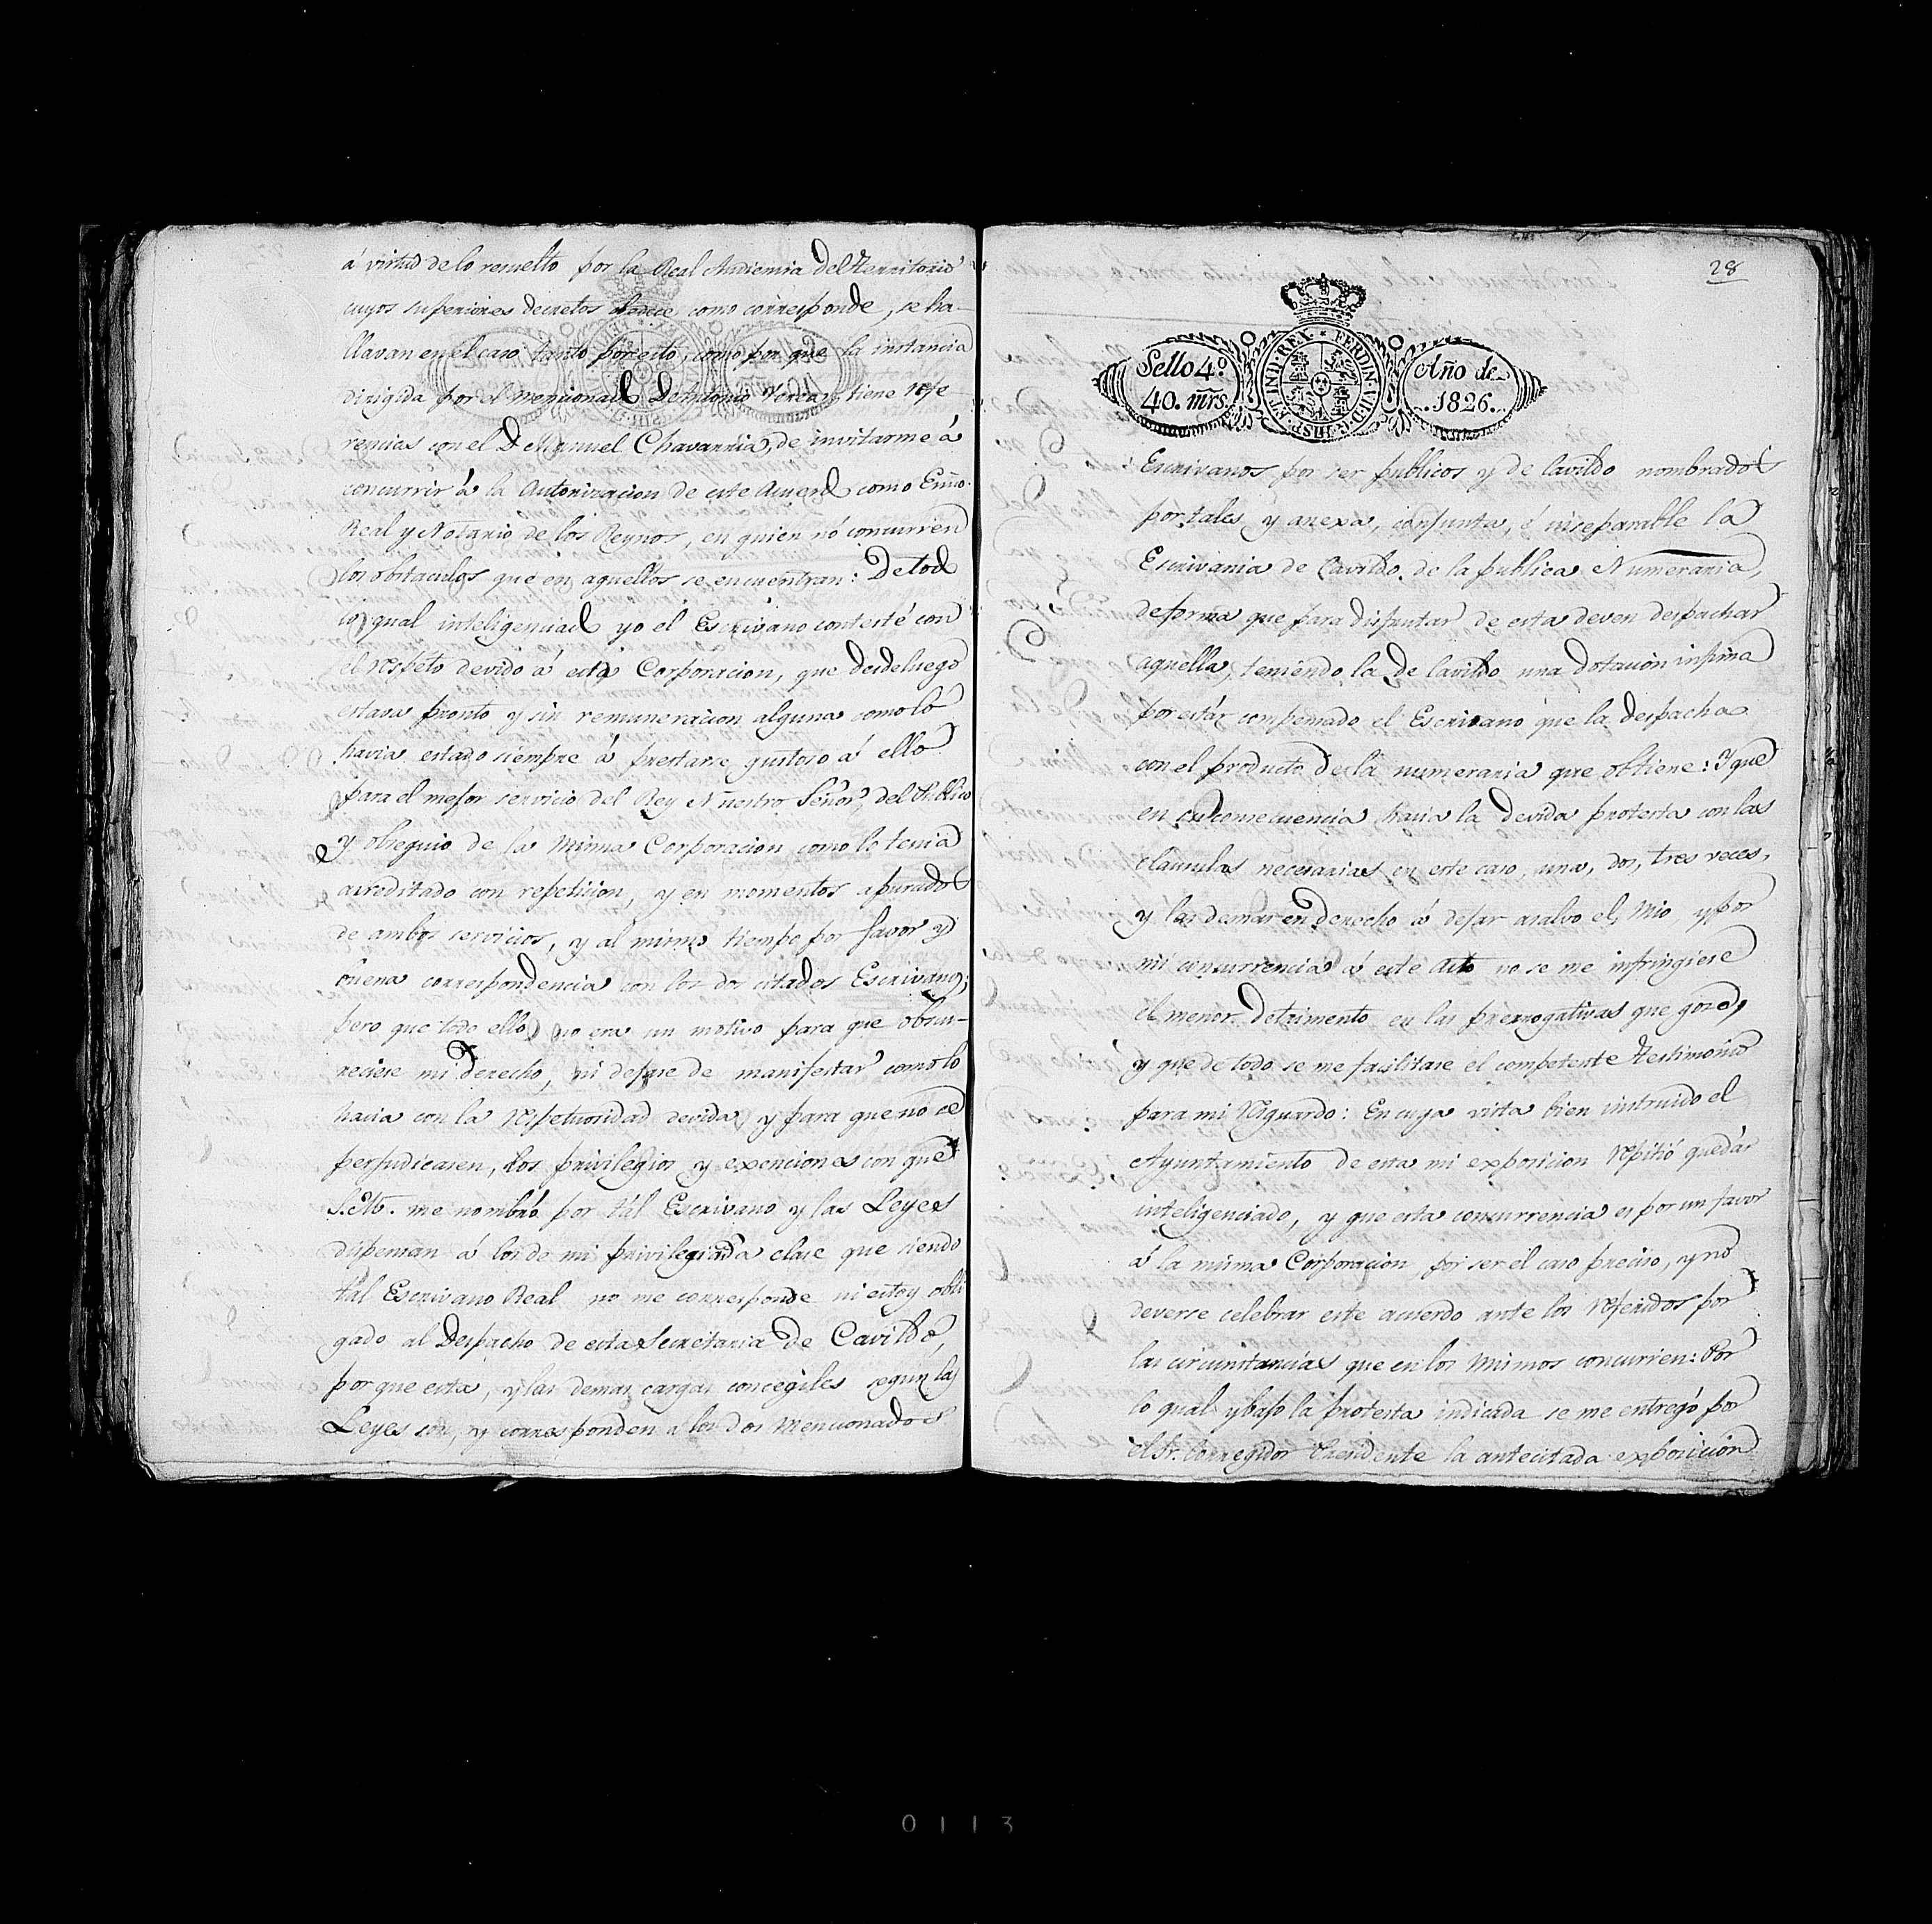 á virtud de lo resuelto por la Real Audiencia del Territorio
cuyos superiores decretos obedece como corresponde, se ha-
llavan en el caso tanto por esto, como por que la instancia
dirigida por el mencionado Dn Antonio Verea, tiene refe
rencias con el Dn Manuel Chavarria, de invitarme á
concurrir á la Autorizacion de este Acuerdo como Essno.
Real y Notario de los Reynos, en quien nó concurren
los obstaculos que en aquellos se encuentran: De todo
lo qual inteligenciado yo el Escrivano contesté con
el respeto devido á esta Corporacion, que desde luego
estava pronto y sin remuneracion alguna como lo
havia estado siempre á prestarse gustoso á ello
para el mejor servicio del Rey Nuestro Señor, del Publico
y obsequio de la misma Corporacion como lo tenia
acreditado con repeticion, y en momentos apurados
de ambos servicios, y al mismo tiempo por favor y
buena correspondencia con los dos citados Escrivanos;
pero que todo ello no era un motivo para que obscu-
reciese mi derecho, ni dejase de manifestar como lo
hacia con la respetuosidad devida y para que no se
perjudicasen, los privilegios y exenciones con que
S.M. me nombró por tál Escrivano y las Leyes
dispensan á los de mi privilegiada clase que siendo
tál Escrivano Real no me corresponde ni estoy obli
gado al Despacho de esta Secretaria de Cavildo,
por que esta, y las demas cargas concegiles segun las
Leyes son, y corresponden a los dos mencionados
28
Sello 4.º
40. mrs.
FERDIN. VII. D. G. HISP. ET IND. REX.
Año de
1826.
Escrivanos por ser publicos y de Cavildo nombrados
por tales y anexa, conjunta, é inseparable la
Escrivania de Cavildo de la publica Numeraria,
de forma que para disfrutar de esta deven despachar
aquella, teniendo la de Cavildo una dotacion infima
por estár compensado el Escrivano que la despacha
con el producto de la numeraria que obtiene: Y que
en su consecuencia hacia la devida protesta con las
clausulas necesarias en este caso, una, dos, tres veces,
y las demas en derecho á dejar asalvo el Mio y por
mi concurrencia á este Acto no se me infringiese
el menor detrimento en las prerrogativas que gozo,
y que de todo se me facilitase el competente Testimonio
para mi resguardo: En cuya vista bien instruido el
Ayuntamiento de esta mi exposicion repitió quedár
inteligenciado, y que esta concurrencia es por un favor
á la misma Corporacion por ser el caso preciso, y no
deverse celebrar este acuerdo ante los referidos por
las circunstancias que en los mismos concurren: Por
lo qual y bajo la protesta indicada se me entregó por
el Sr. Corregidor Presidente la antecitada exposicion